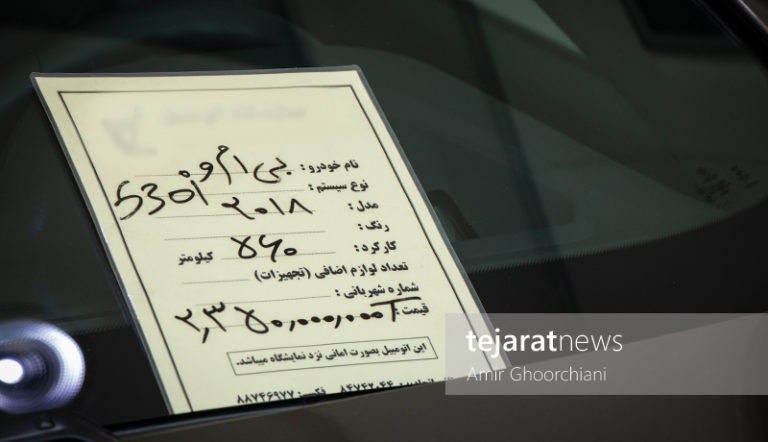 نام خودرو: بی ام و
نوع سیستم: 530i
مدل: ۲۰۱۸
رنگ:
کارکرد: ۷۶۰ کیلومتر
تعداد لوازم اضافی (تجهیزات)
شماره شهربانی:
قیمت: ۲,۳۷۰,۰۰۰,۰۰۰T
این اتومبیل بصورت امانی نزد نمایشگاه میباشد.
۸۴۷۴۲۰۴۴ فکس: ۸۸۷۴۶۹۷۷
tejaratnews
Amir Ghoorchiani